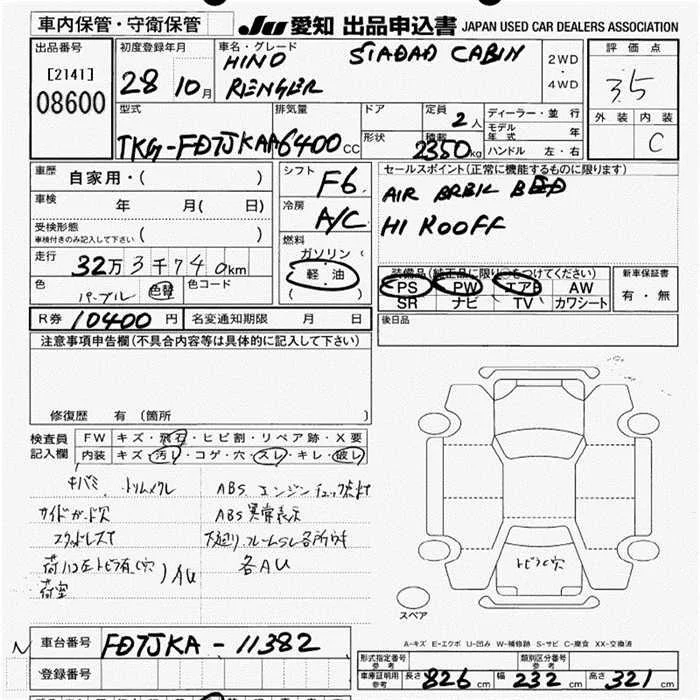 車内保管・守衛保管
JU 愛知 出品申込書 JAPAN USED CAR DEALERS ASSOCIATION
出品番号
[2141]
08600
初度登録年月
28 10月
車名・グレード
HINO STADAD CABIN
RENGLER
2WD
・
4WD
評価点
3.5
外装 内装
C
型式
TKG-FD7JKAA
排気量
6400cc
ドア
形状
定員
2人
積載
2350kg
ディーラー・並行
モデル年式 年
ハンドル 左・右
車歴
自家用・( )
車検
年 月( 日)
受検形態
車検付きのみ記入して下さい ( )
走行
32万3千740km
色
パープル 色替
色コード
シフト
F6
冷房
A/C
燃料
ガソリン
軽油
( )
セールスポイント(正常に機能するものに限ります)
AIR BED
HI ROOFF
装備品(純正品に限り○をつけてください)
PS PW エアB AW
SR ナビ TV カワシート
新車保証書
有・無
R券 10400円 名変通知期限 月 日
後日品
注意事項申告欄(不具合内容等は具体的に記入して下さい)
修復歴 有(箇所 )
検査員記入欄
FW キズ・飛石・ヒビ割・リペア跡・X要
内装 キズ・汚レ・コゲ・穴・スレ・キレ・破レ
キバミ トリムメクレ
サイドガード穴
荷室
AU
ABS エンジンチェック点灯
ABS異常表示
下廻り フレームSL各所サキ
各AU
トビラ穴
スペア
A-キズ E-エクボ U-凹み W-補修跡 S-サビ C-腐食 XX-交換済
N 車台番号 FD7JKA-11382
登録番号
形式指定番号 参考
類別区分番号 参考
車庫証明用 参考 長さ 826cm 幅 232cm 高さ 321cm